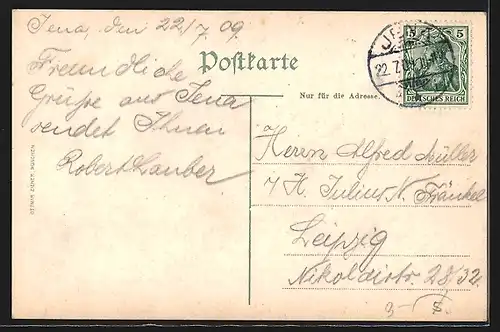 Jena, den 22/7 09
Freundliche
Grüße aus Jena
sendet Ihnen
Robert Lauber
Postkarte
Nur für die Adresse.
JENA
22.7.09
5
DEUTSCHES REICH
Herrn Alfred Müller
Julius N. Fränkel
Leipzig
Nikolaistr. 28/32.